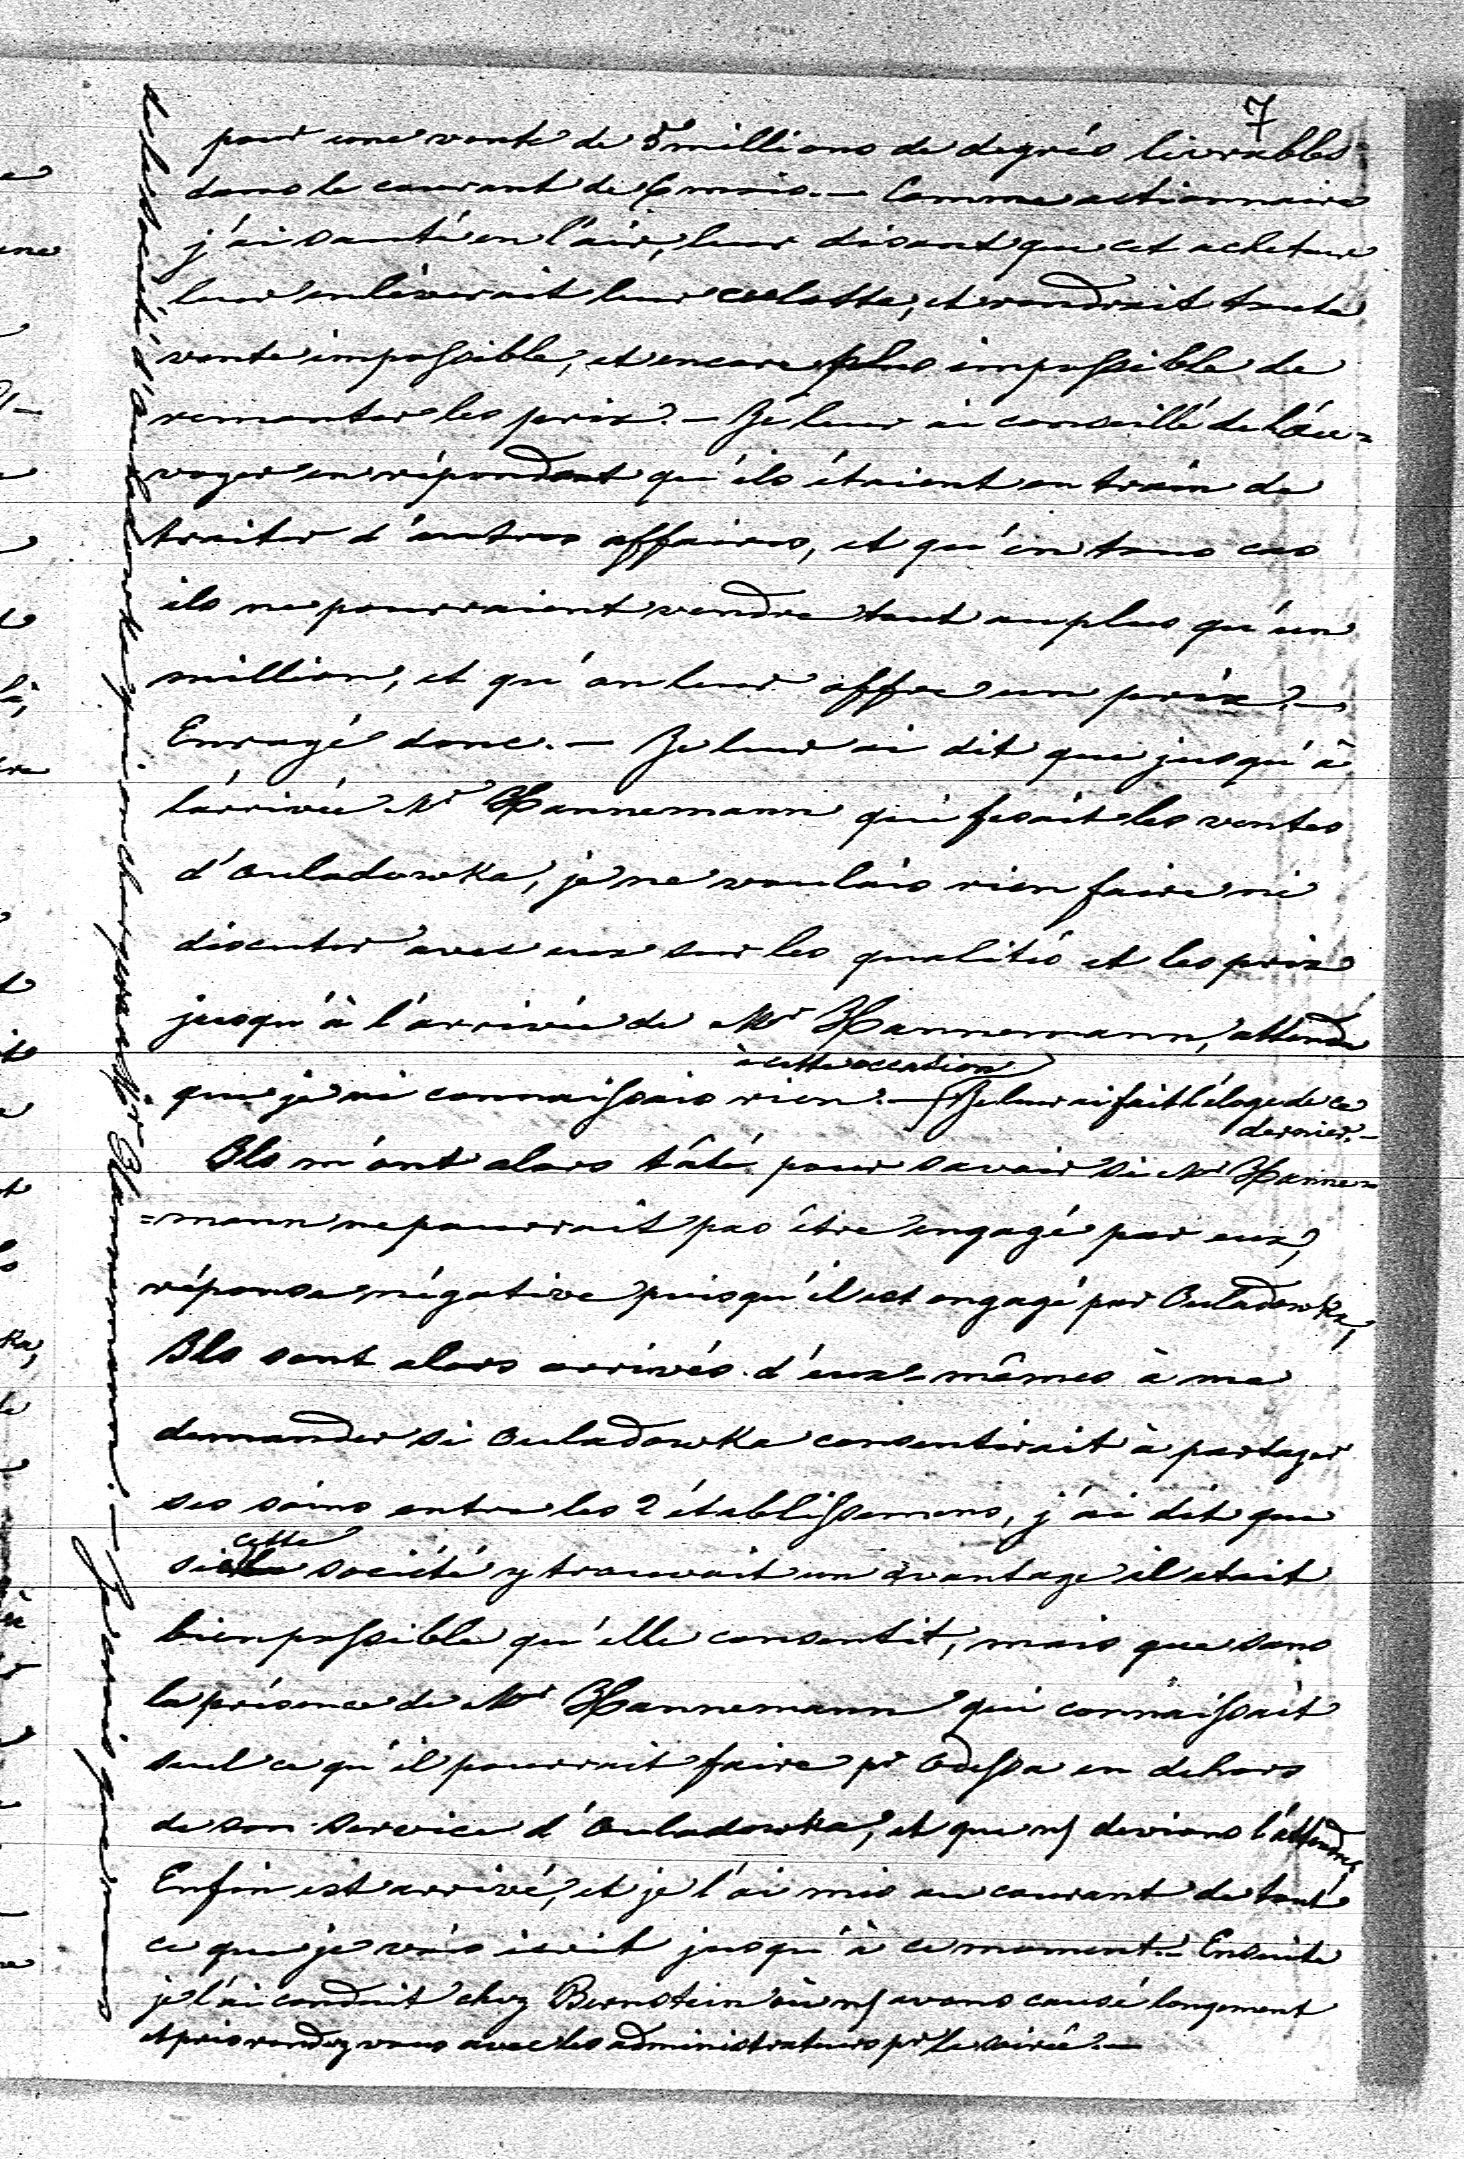 7
pour une vente de 5 millions de degrés livrables
dans le courant de 6 mois. — Comme actionnaire
j'ai sauté en l'air, leur disant que cet acheteur
leur enlèverait leur culotte, et rendrait toute
vente impossible, et encore plus impossible de
remonter les prix. — Je leur ai conseillé de
en répondant qu'ils étaient en train de
traiter d'autres affaires, et qu'en tous cas
ils ne pourraient vendre tout au plus qu'un
million, et qu'on leur offre un prix. —
Enragé donc. — Je leur ai dit que jusqu'à
l'arrivée Mr Hannemann qui fesait les ventes
d'Ouladowka, je ne voulais rien faire ni
discuter avec eux sur les qualités et les prix
jusqu'à l'arrivée de Mr Hannemann, attendu
que je ni connaissais rien. — à cette occasion Je leur ai fait l'éloge de ce
dernier. —
Ils m'ont alors tâté pour savoir si Mr Hanne=
=mann ne pourrait pas être engagé par eux,
réponse négative puisqu'il est engagé par Ouladowka,
Ils sont alors arrivés d'eux-mêmes à me
demander si Ouladowka consentirait à partager
ses soins entre les 2 établissemens, j'ai dit que
si cette société y trouvait un avantage il etait
bien possible qu'elle consentit, mais que sans
la présence de Mr Hannemann qui connaissait
seul ce qu'il pourrait faire pr Odessa en dehors
de son service d'Ouladowka, et que ns devions l'attendre
Enfin est arrivé, et je l'ai mis au courant de tout
ce que je vois écrit jusqu'à ce moment. — Ensuite
je l'ai conduit chez Bernstein où ns avons causé longement
et pris rendez vous avec les administrateurs pr le soirée. —
de la Société d'Ouladowka qui en chargera Mr Hannemann. — Je crois que nous